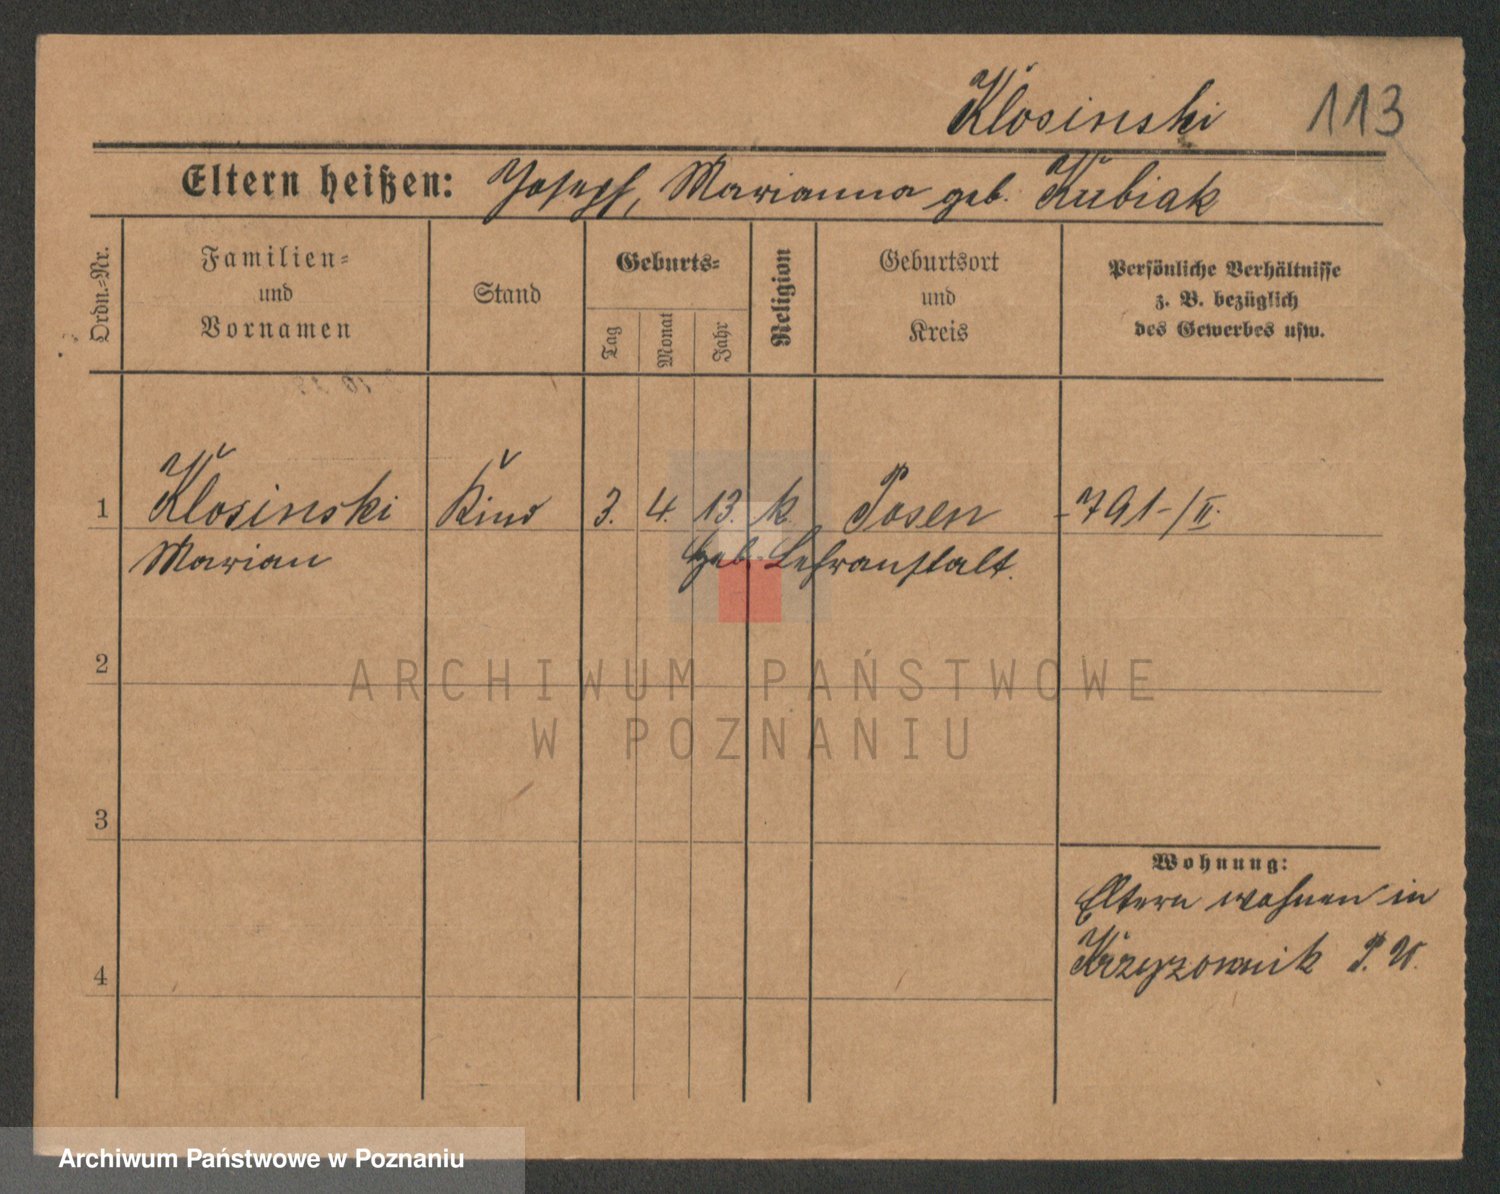 Klosinski 113
Eltern heißen: Josef, Marianna geb. Kubiak
Ordn.-Nr.
Familien-
und
Vornamen
Stand
Geburts-
Tag
Monat
Jahr
Religion
Geburtsort
und
Kreis
Persönliche Verhältnisse
z. B. bezüglich
des Gewerbes usw.
1 Klosinski Kind 3. 4. 13. k. Posen -791-/II.
Marian geb. Lehranstalt.
2
ARCHIWUM PAŃSTWOWE
W POZNANIU
3
Wohnung:
Eltern wohnen in
Krzyzownik P. W.
4
Archiwum Państwowe w Poznaniu